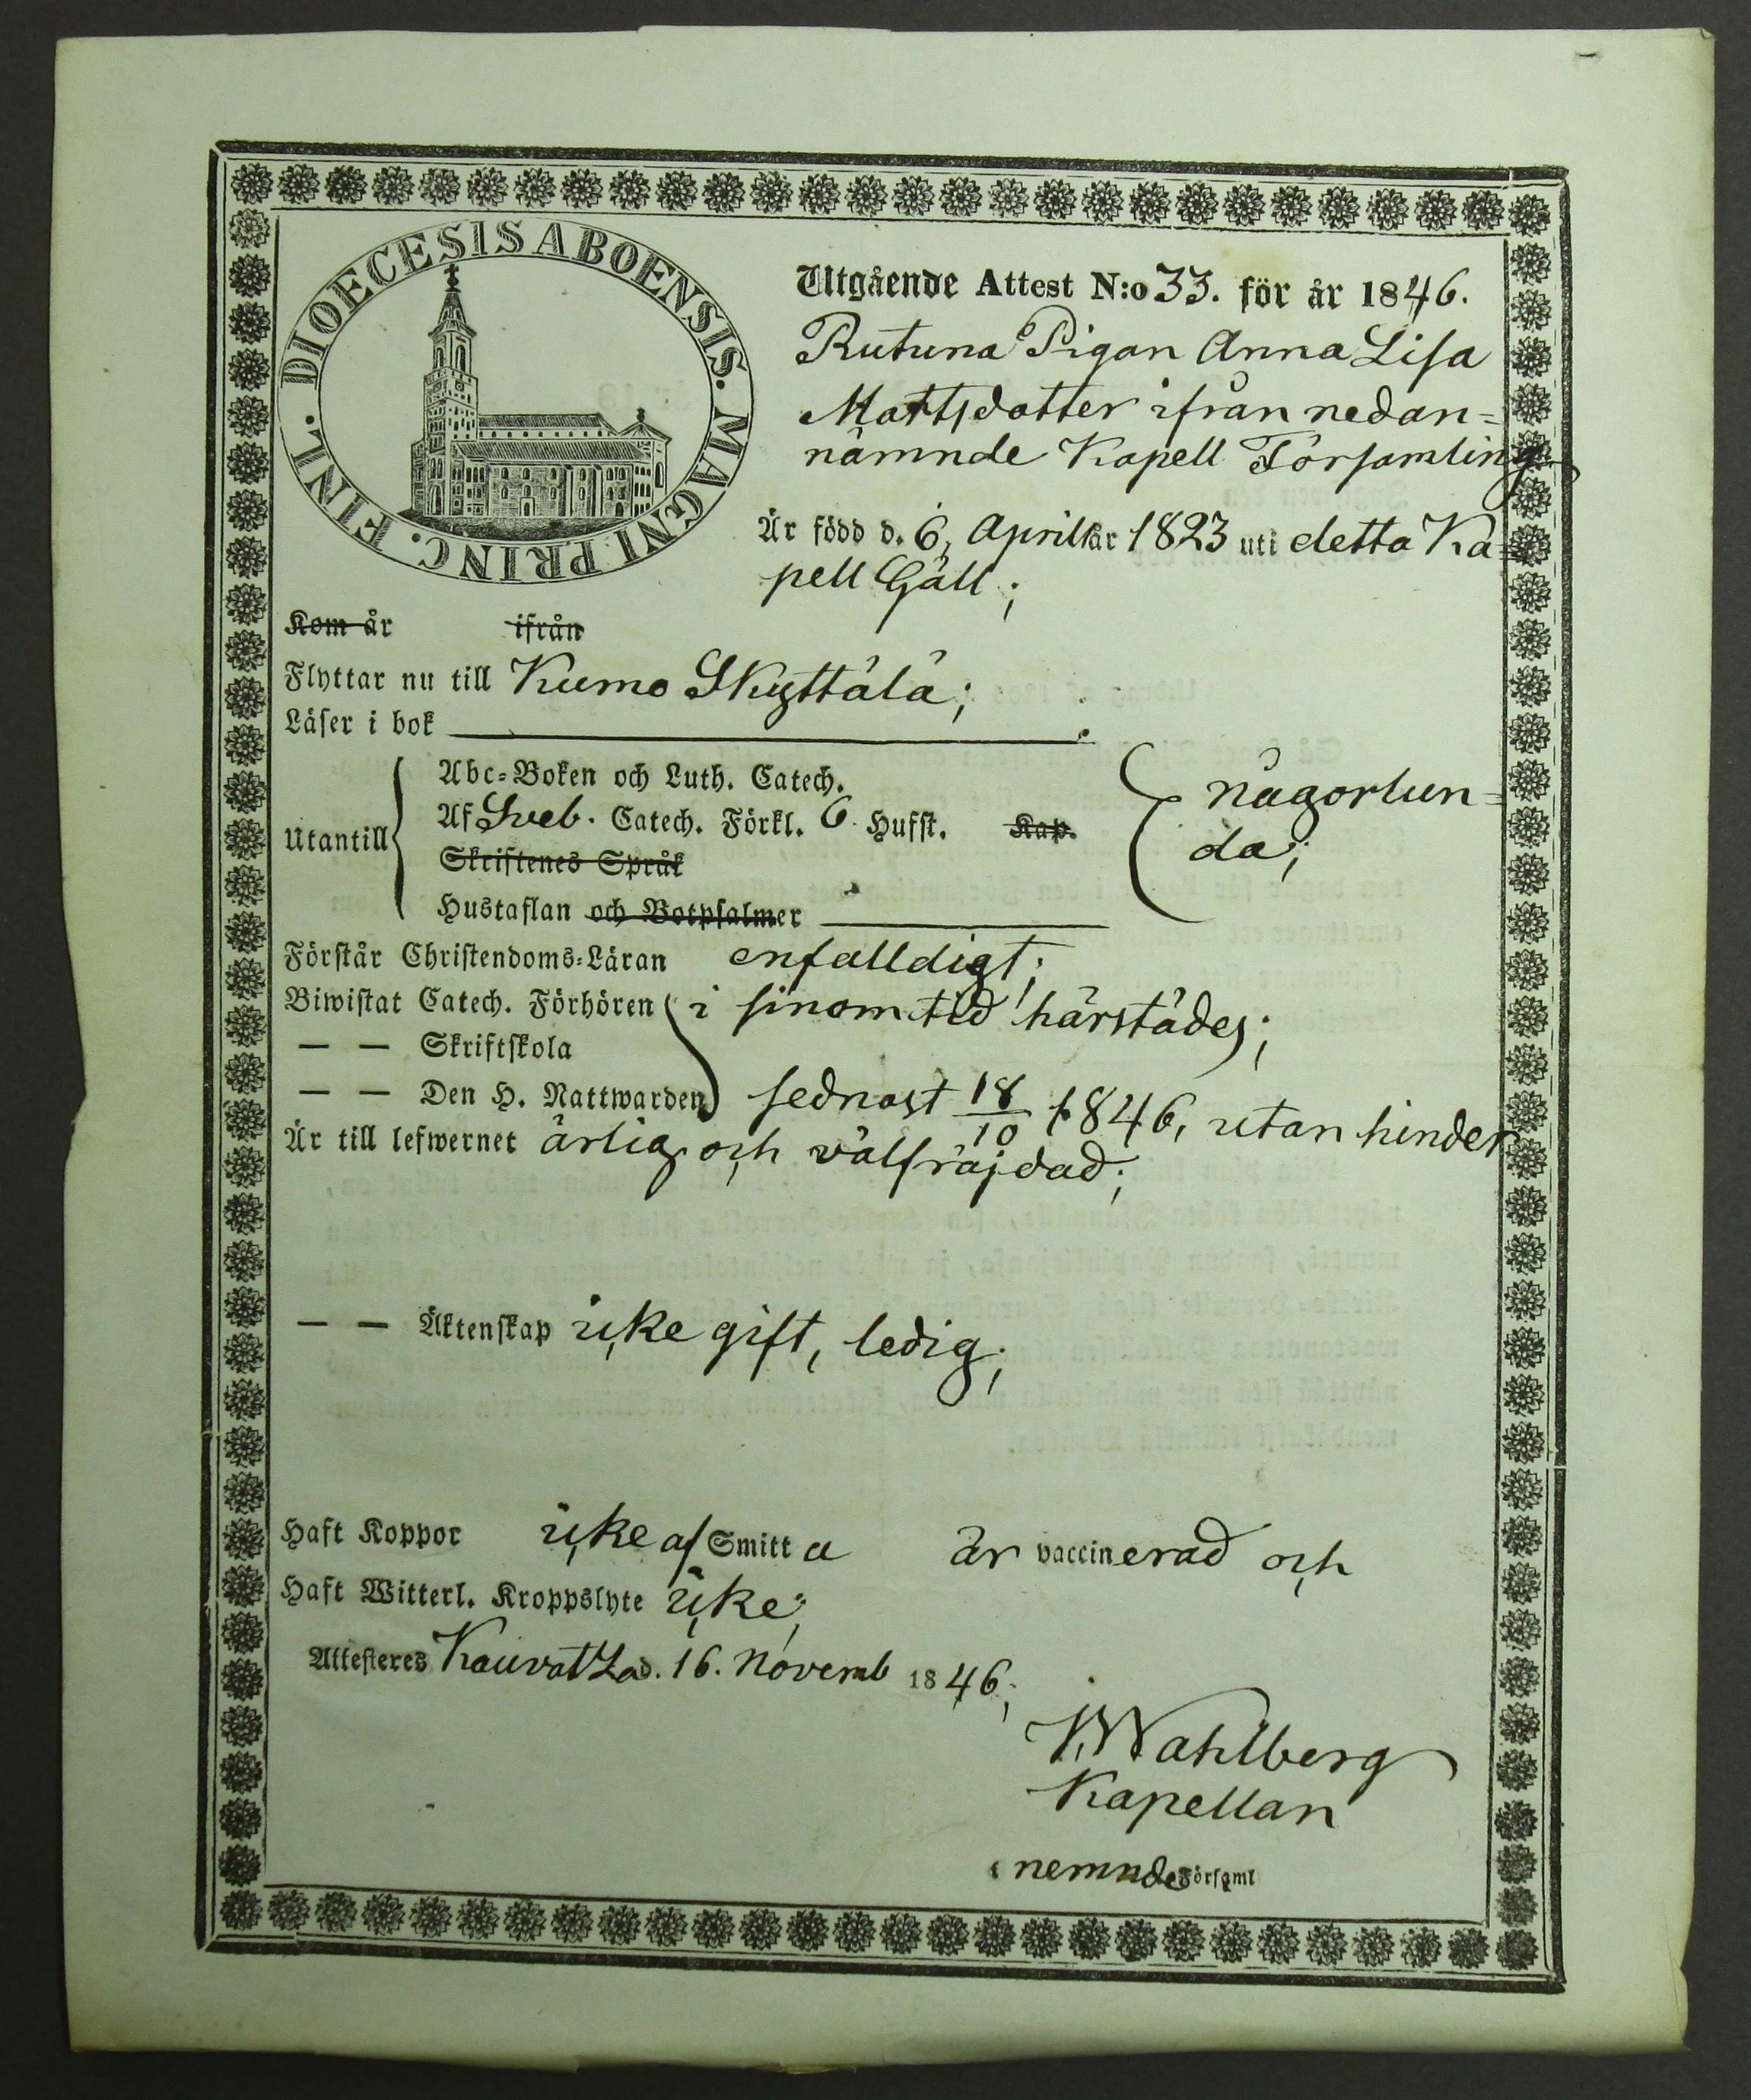 DIOECESIS ABOENSIS. MAGNI PRINC. FINL.
Utgående Attest N:o 33. för år 1846.
Rutuna Pigan Anna Lisa
Mattsdotter ifrån nedan=
nämnde Kapell Församling
Är född d. 6, April år 1823 uti detta Ka=
pell Gäll;
Kom år ifrån
Flyttar nu till Kumo Skyttälä;
Läser i bok
Utantill
Abc=Boken och Luth. Catech.
Af Sveb. Catech. Förkl. 6 Hufst. Kap.
Skriftenes Språk
Hustaflan och Botpsalmer
någorlun=
da;
Förstår Christendoms=Läran enfalldigt;
Biwistat Catech. Förhören i sinom tid härstädes;
— — Skriftskola
— — Den H. Nattwarden sednast 18/10 1846, utan hinder
Är till lefwernet ärlig och välfräjdad;
— — Äktenskap icke gift, ledig;
Haft Koppor icke af Smitta är vaccinerad och
Haft Witterl. Kroppslyte icke;
Attesteres Kauvatza d. 16. Novemb 1846;
Wahlberg
Kapellan
i nemnde Församl